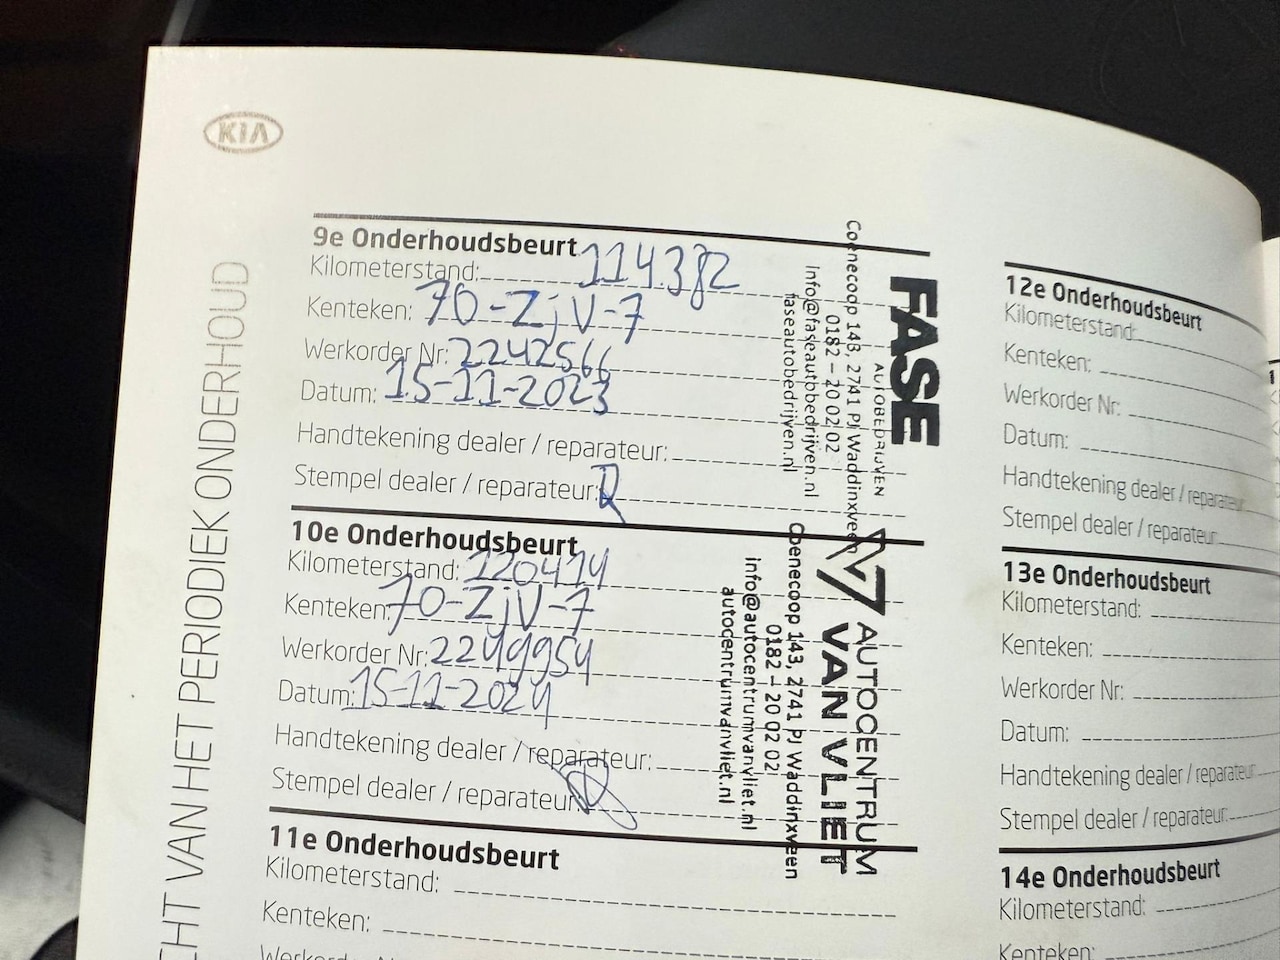 KIA
CHT VAN HET PERIODIEK ONDERHOUD
9e Onderhoudsbeurt
Kilometerstand: 114382
Kenteken: 70-ZjV-7
Werkorder Nr: 2242566
Datum: 15-11-2023
Handtekening dealer / reparateur:
Stempel dealer / reparateur:
FASE
AUTOBEDRIJVEN
Coenecoop 143, 2741 PJ Waddinxveen
0182 - 20 02 02
info@faseautobedrijven.nl
faseautobedrijven.nl
10e Onderhoudsbeurt
Kilometerstand: 120414
Kenteken: 70-ZjV-7
Werkorder Nr: 2249954
Datum: 15-11-2024
Handtekening dealer / reparateur:
Stempel dealer / reparateur:
AUTOCENTRUM
VAN VLIET
Coenecoop 143, 2741 PJ Waddinxveen
0182 - 20 02 02
info@autocentrumvanvliet.nl
autocentrumvanvliet.nl
11e Onderhoudsbeurt
Kilometerstand:
Kenteken:
12e Onderhoudsbeurt
Kilometerstand:
Kenteken:
Werkorder Nr:
Datum:
Handtekening dealer / reparateur:
Stempel dealer / reparateur:
13e Onderhoudsbeurt
Kilometerstand:
Kenteken:
Werkorder Nr:
Datum:
Handtekening dealer / reparateur:
Stempel dealer / reparateur:
14e Onderhoudsbeurt
Kilometerstand:
Kenteken: